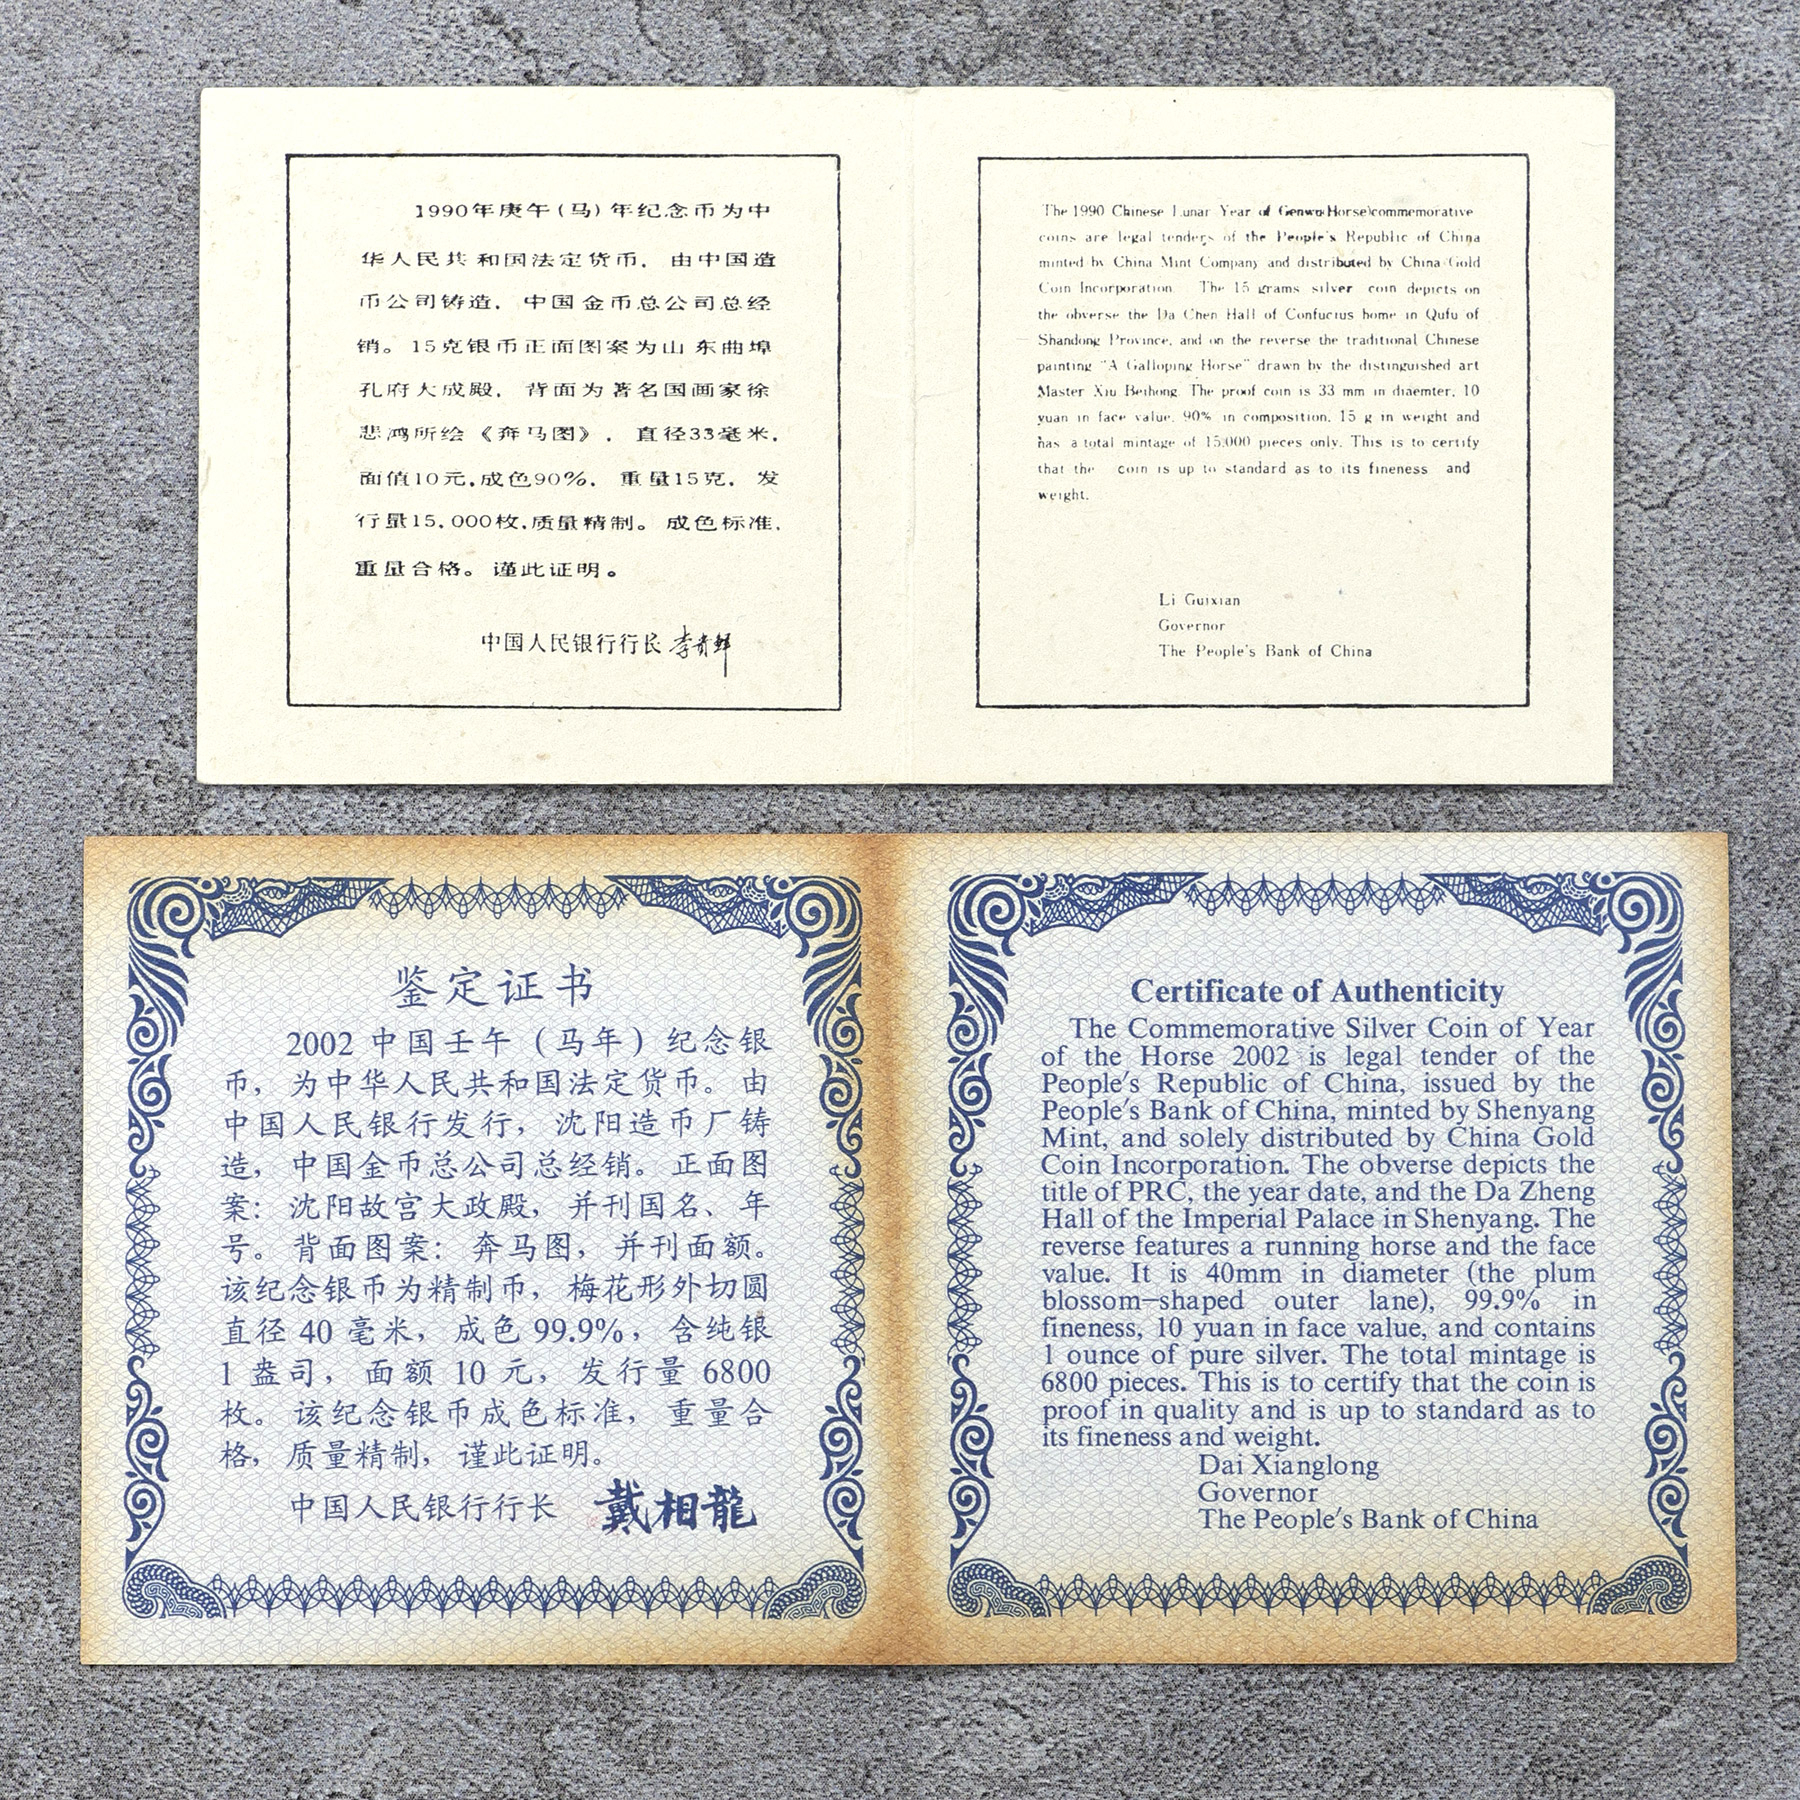 1990年庚午(马)年纪念币为中
华人民共和国法定货币，由中国造
币公司铸造，中国金币总公司总经
销。15克银币正面图案为山东曲埠
孔府大成殿，背面为著名国画家徐
悲鸿所绘《奔马图》，直径33毫米，
面值10元,成色90%，重量15克，发
行量15,000枚,质量精制。成色标准，
重量合格。谨此证明。
中国人民银行行长 李贵鲜
The 1990 Chinese Lunar Year of Genwu(Horse)commemorative
coins are legal tenders of the People's Republic of China
minted by China Mint Company and distributed by China Gold
Coin Incorporation. The 15 grams silver coin depicts on
the obverse the Da Chen Hall of Confucius home in Qufu of
Shandong Province, and on the reverse the traditional Chinese
painting "A Galloping Horse" drawn by the distinguished art
Master Xiu Beihong. The proof coin is 33 mm in diaemter, 10
yuan in face value, 90% in composition, 15 g in weight and
has a total mintage of 15,000 pieces only. This is to certify
that the coin is up to standard as to its fineness and
weight.
Li Guixian
Governor
The People's Bank of China
鉴定证书
2002 中国壬午（马年）纪念银
币，为中华人民共和国法定货币。由
中国人民银行发行，沈阳造币厂铸
造，中国金币总公司总经销。正面图
案：沈阳故宫大政殿，并刊国名、年
号。背面图案：奔马图，并刊面额。
该纪念银币为精制币，梅花形外切圆
直径 40 毫米，成色 99.9%，含纯银
1 盎司，面额 10 元，发行量 6800
枚。该纪念银币成色标准，重量合
格，质量精制，谨此证明。
中国人民银行行长 戴相龍
Certificate of Authenticity
The Commemorative Silver Coin of Year
of the Horse 2002 is legal tender of the
People's Republic of China, issued by the
People's Bank of China, minted by Shenyang
Mint, and solely distributed by China Gold
Coin Incorporation. The obverse depicts the
title of PRC, the year date, and the Da Zheng
Hall of the Imperial Palace in Shenyang. The
reverse features a running horse and the face
value. It is 40mm in diameter (the plum
blossom-shaped outer lane), 99.9% in
fineness, 10 yuan in face value, and contains
1 ounce of pure silver. The total mintage is
6800 pieces. This is to certify that the coin is
proof in quality and is up to standard as to
its fineness and weight.
Dai Xianglong
Governor
The People's Bank of China